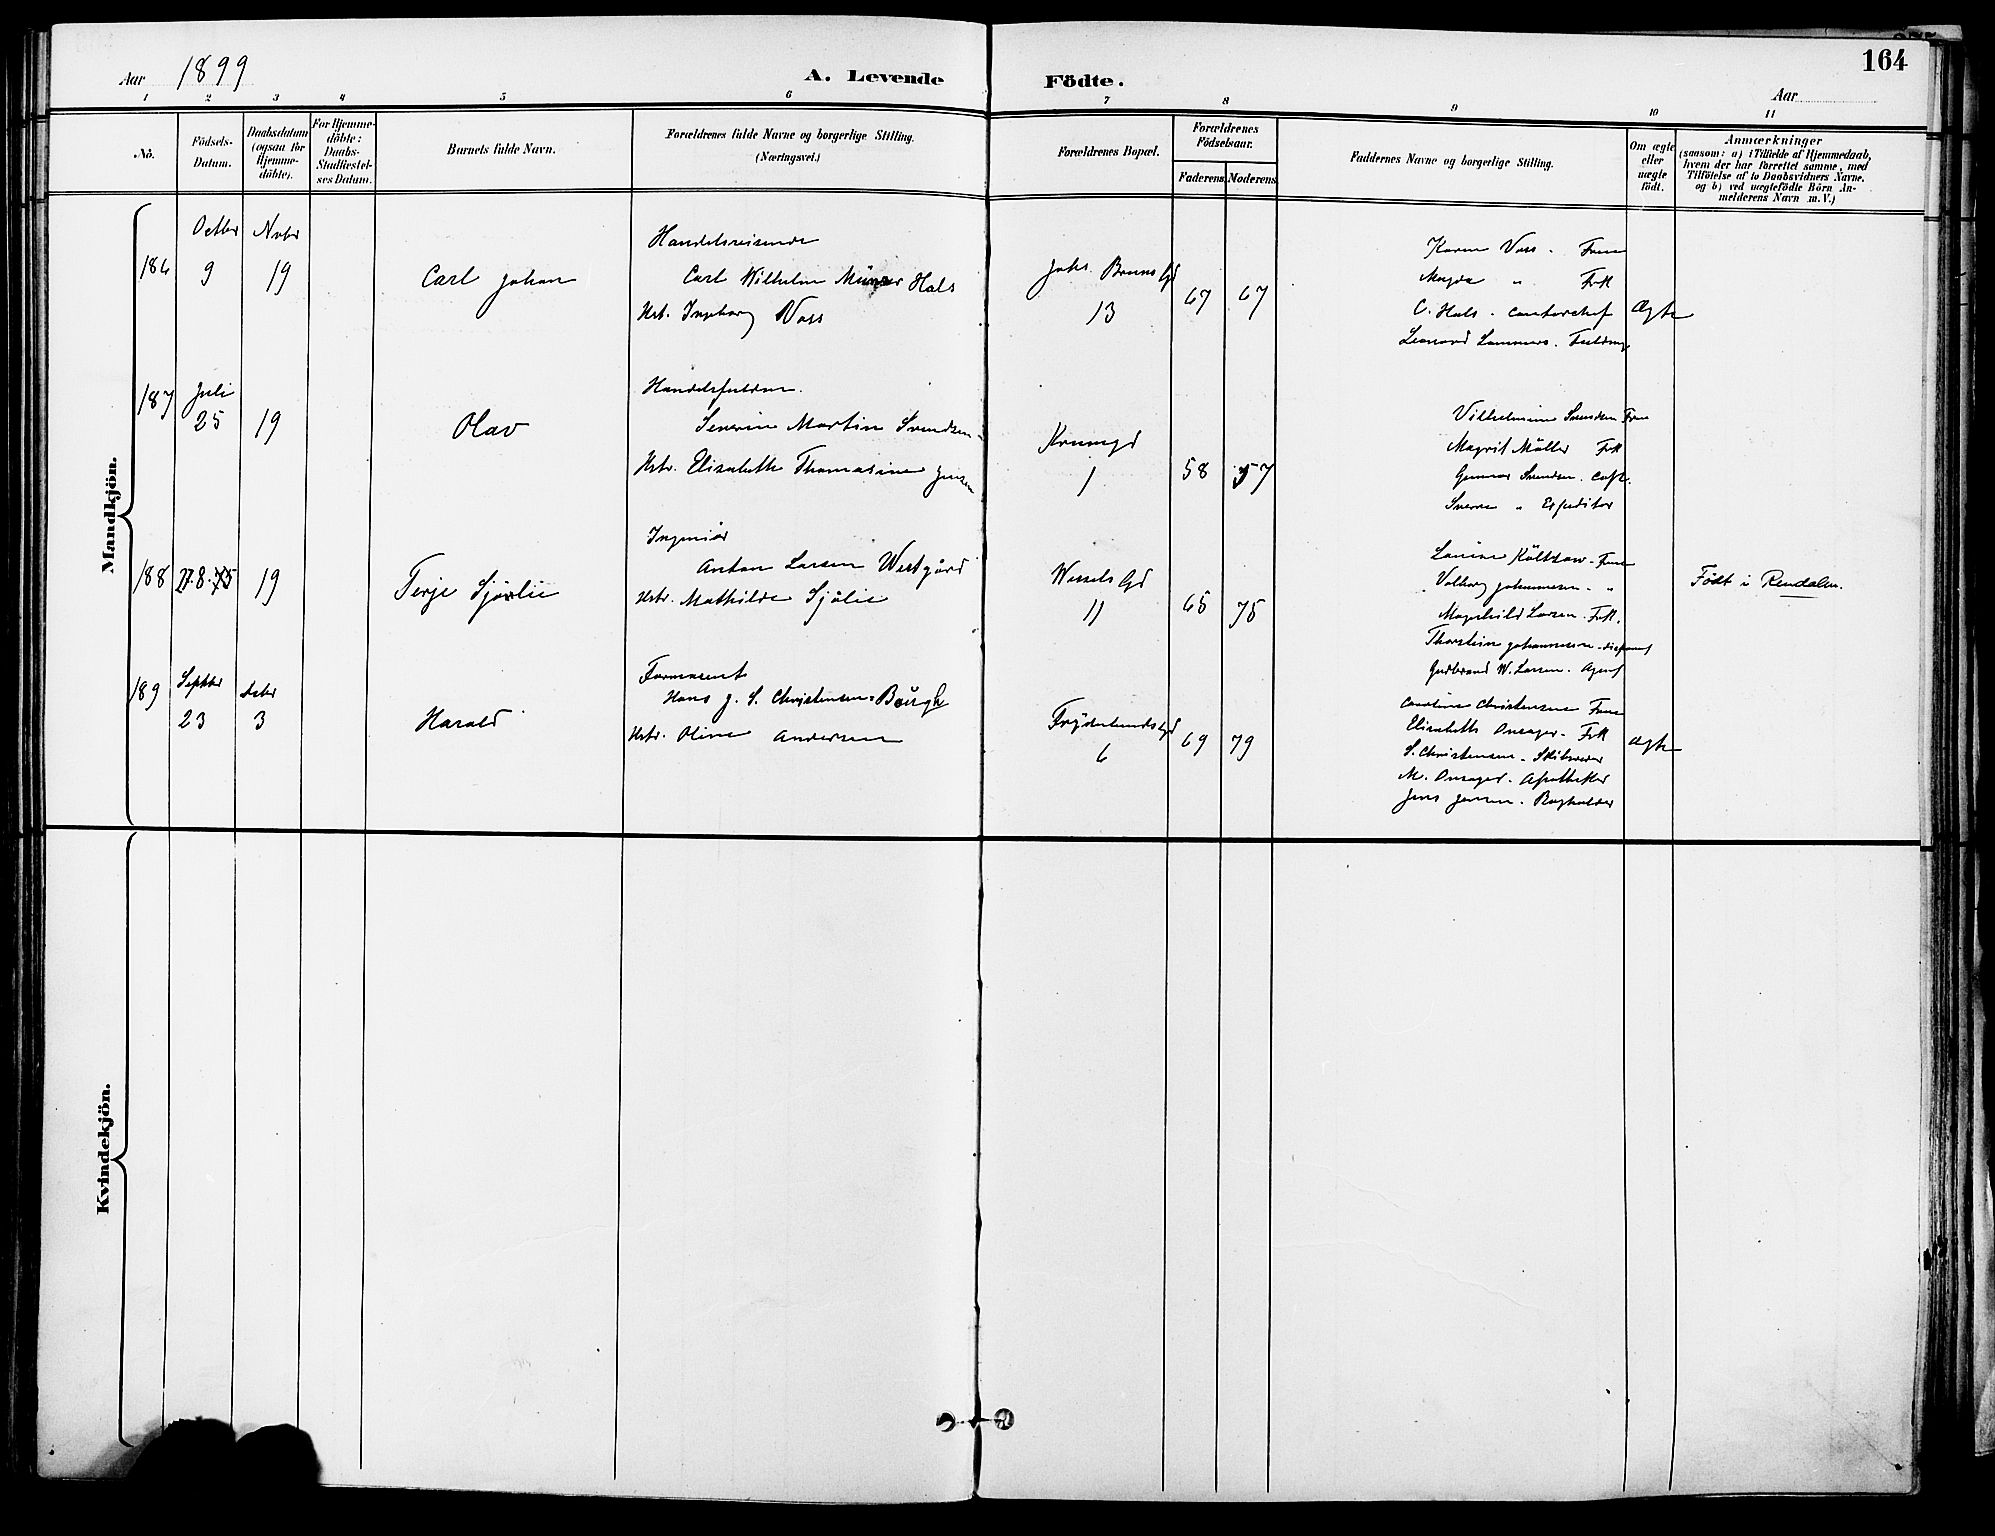 164
Aar 1899
A. Levende Födte.
Aar
1 2 3 4 5 6 7 8 9 10 11
No.
Födsels-
Datum.
Daabsdatum
(ogsaa for
Hjemme-
döbte).
For Hjemme-
döbte:
Daabs-
Stadfæstel-
ses Datum.
Barnets fulde Navn.
Forældrenes fulde Navne og borgerlige Stilling.
(Næringsvei.)
Forældrenes Bopæl.
Forældrenes
Födselsaar.
Faderens Moderens
Faddernes Navne og borgerlige Stilling.
Om ægte
eller
uægte
födt.
Anmærkninger
(saasom: a) i Tilfælde af Hjemmedaab,
hvem der har forrettet samme, med
Tilföielse af to Daabsvidners Navne,
og b) ved uægtefödte Börn An-
melderens Navn m. V.)
Mandkjön.
186
Octbr
9
Nvbr
19
Carl Johan
Handelsreisende
Carl Wilhelm Hals
Hst. Ingeborg Voss
Johs. Bruns Gd
13
67 67
Karen Voss - Frue
Magda " Frk
C. Hals - contorchef
Leonard Lammers.
Ægte
187
Juli
25
19
Olav
Handelsfuldm.
Severin Martin Svendsen
Hstr. Elisabeth Thomasine Jensen
1
58 57
Vilhelmine Svendsen Frue
Magrit Møller Frk
Gunnar Svendsen
Sverre " Expeditør
188
27.8.
19
Terje Sjølie
Ingeniør
Anton Larsen Westgård
Hstr. Mathilde Sjølie
Wessels Gd
11
65 75
Frue
Valborg Johannesen - "
Magnhild Larsen - Frk.
Thorstein Johannesen -
Gudbrand W. Larsen - Agent
Født i Rendalen.
189
Septbr
23
Debr
3
Harald
Farmaceut
Hans J. S. Christensen
Hstr. Oline Andersen
Frydenlunds Gd
6
69 79
Caroline Christensen Frue
Elisabeth Onsager - Frk
S. Christensen - Skibsreder
M. Onsager - Apotheker
Jens Jensen - Bogholder
Ægte
Kvindekjön.